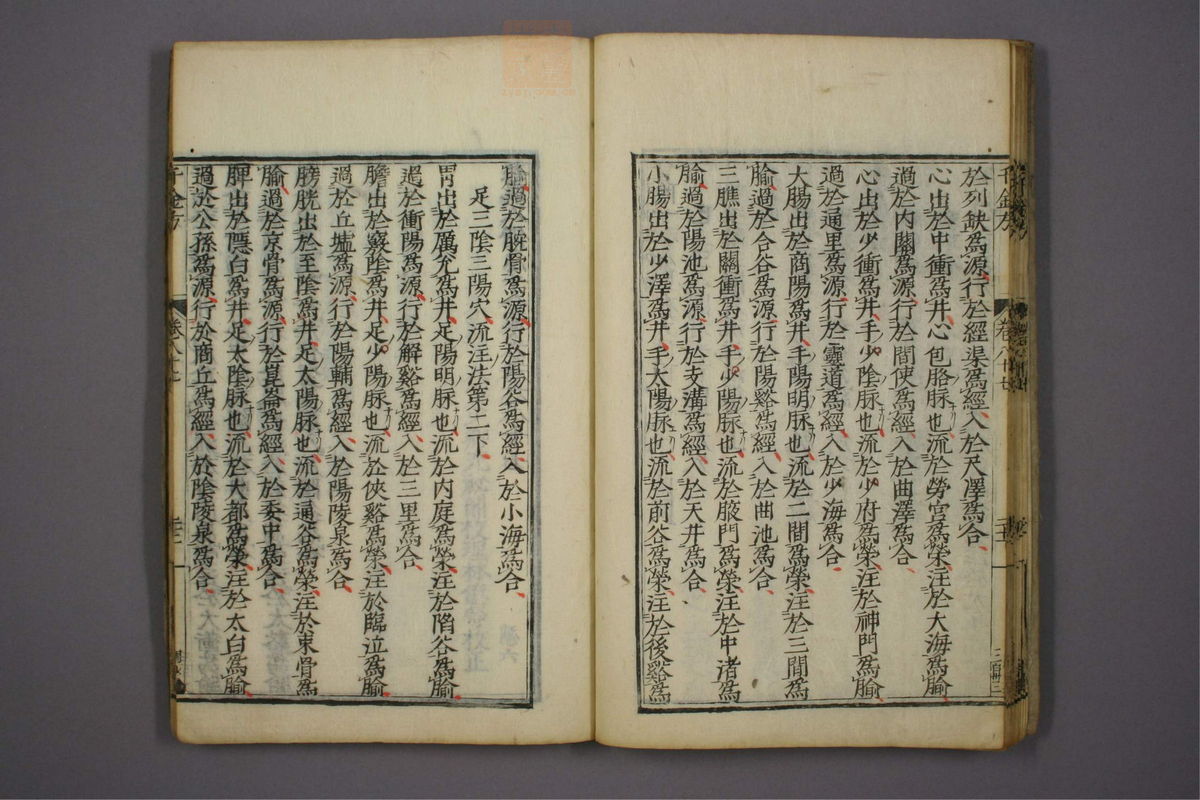 於列缺爲源行於經渠爲經入於尺澤爲合
心出於中衝爲井心包胳脉也流於勞宮爲滎注於大海爲腧
過於內關爲源行於間使爲經入於曲澤爲合
心出於少衝爲井手少陰脉也流於少府爲滎注於神門爲腧
過於通里爲源行於靈道爲經入於少海爲合
大腸出於商陽爲井手陽明脉也流於二間爲滎注於三間爲
腧過於合谷爲源行於陽谿爲經入於曲池爲合
三膲出於關衝爲井手少陽脉也流於腋門爲滎注於中渚爲
腧過於陽池爲源行於支溝爲經入於天井爲合
小腸出於少澤爲井手太陽脉也流於前谷爲滎注於後谿爲
腧過於腕骨爲源行於陽谷爲經入於小海爲合
足三陰三陽穴流注法第二下
胃出於厲兊爲井足陽明脉也流於内庭爲滎注於陷谷爲腧
過於衝陽爲源行於解谿爲經入於三里爲合
膽出於竅陰爲井足少陽脉也流於俠谿爲滎注於臨泣爲腧
過於丘墟爲源行於陽輔爲經入於陽陵泉爲合
膀胱出於至陰爲井足太陽脉也流於通谷爲滎注於束骨爲
腧過於京骨爲源行於崑崙爲經入於委中爲合
脾出於隱白爲井足太陰脉也流於大都爲滎注於太白爲腧
過於公孫爲源行於商丘爲經入於陰陵泉爲合
千金方